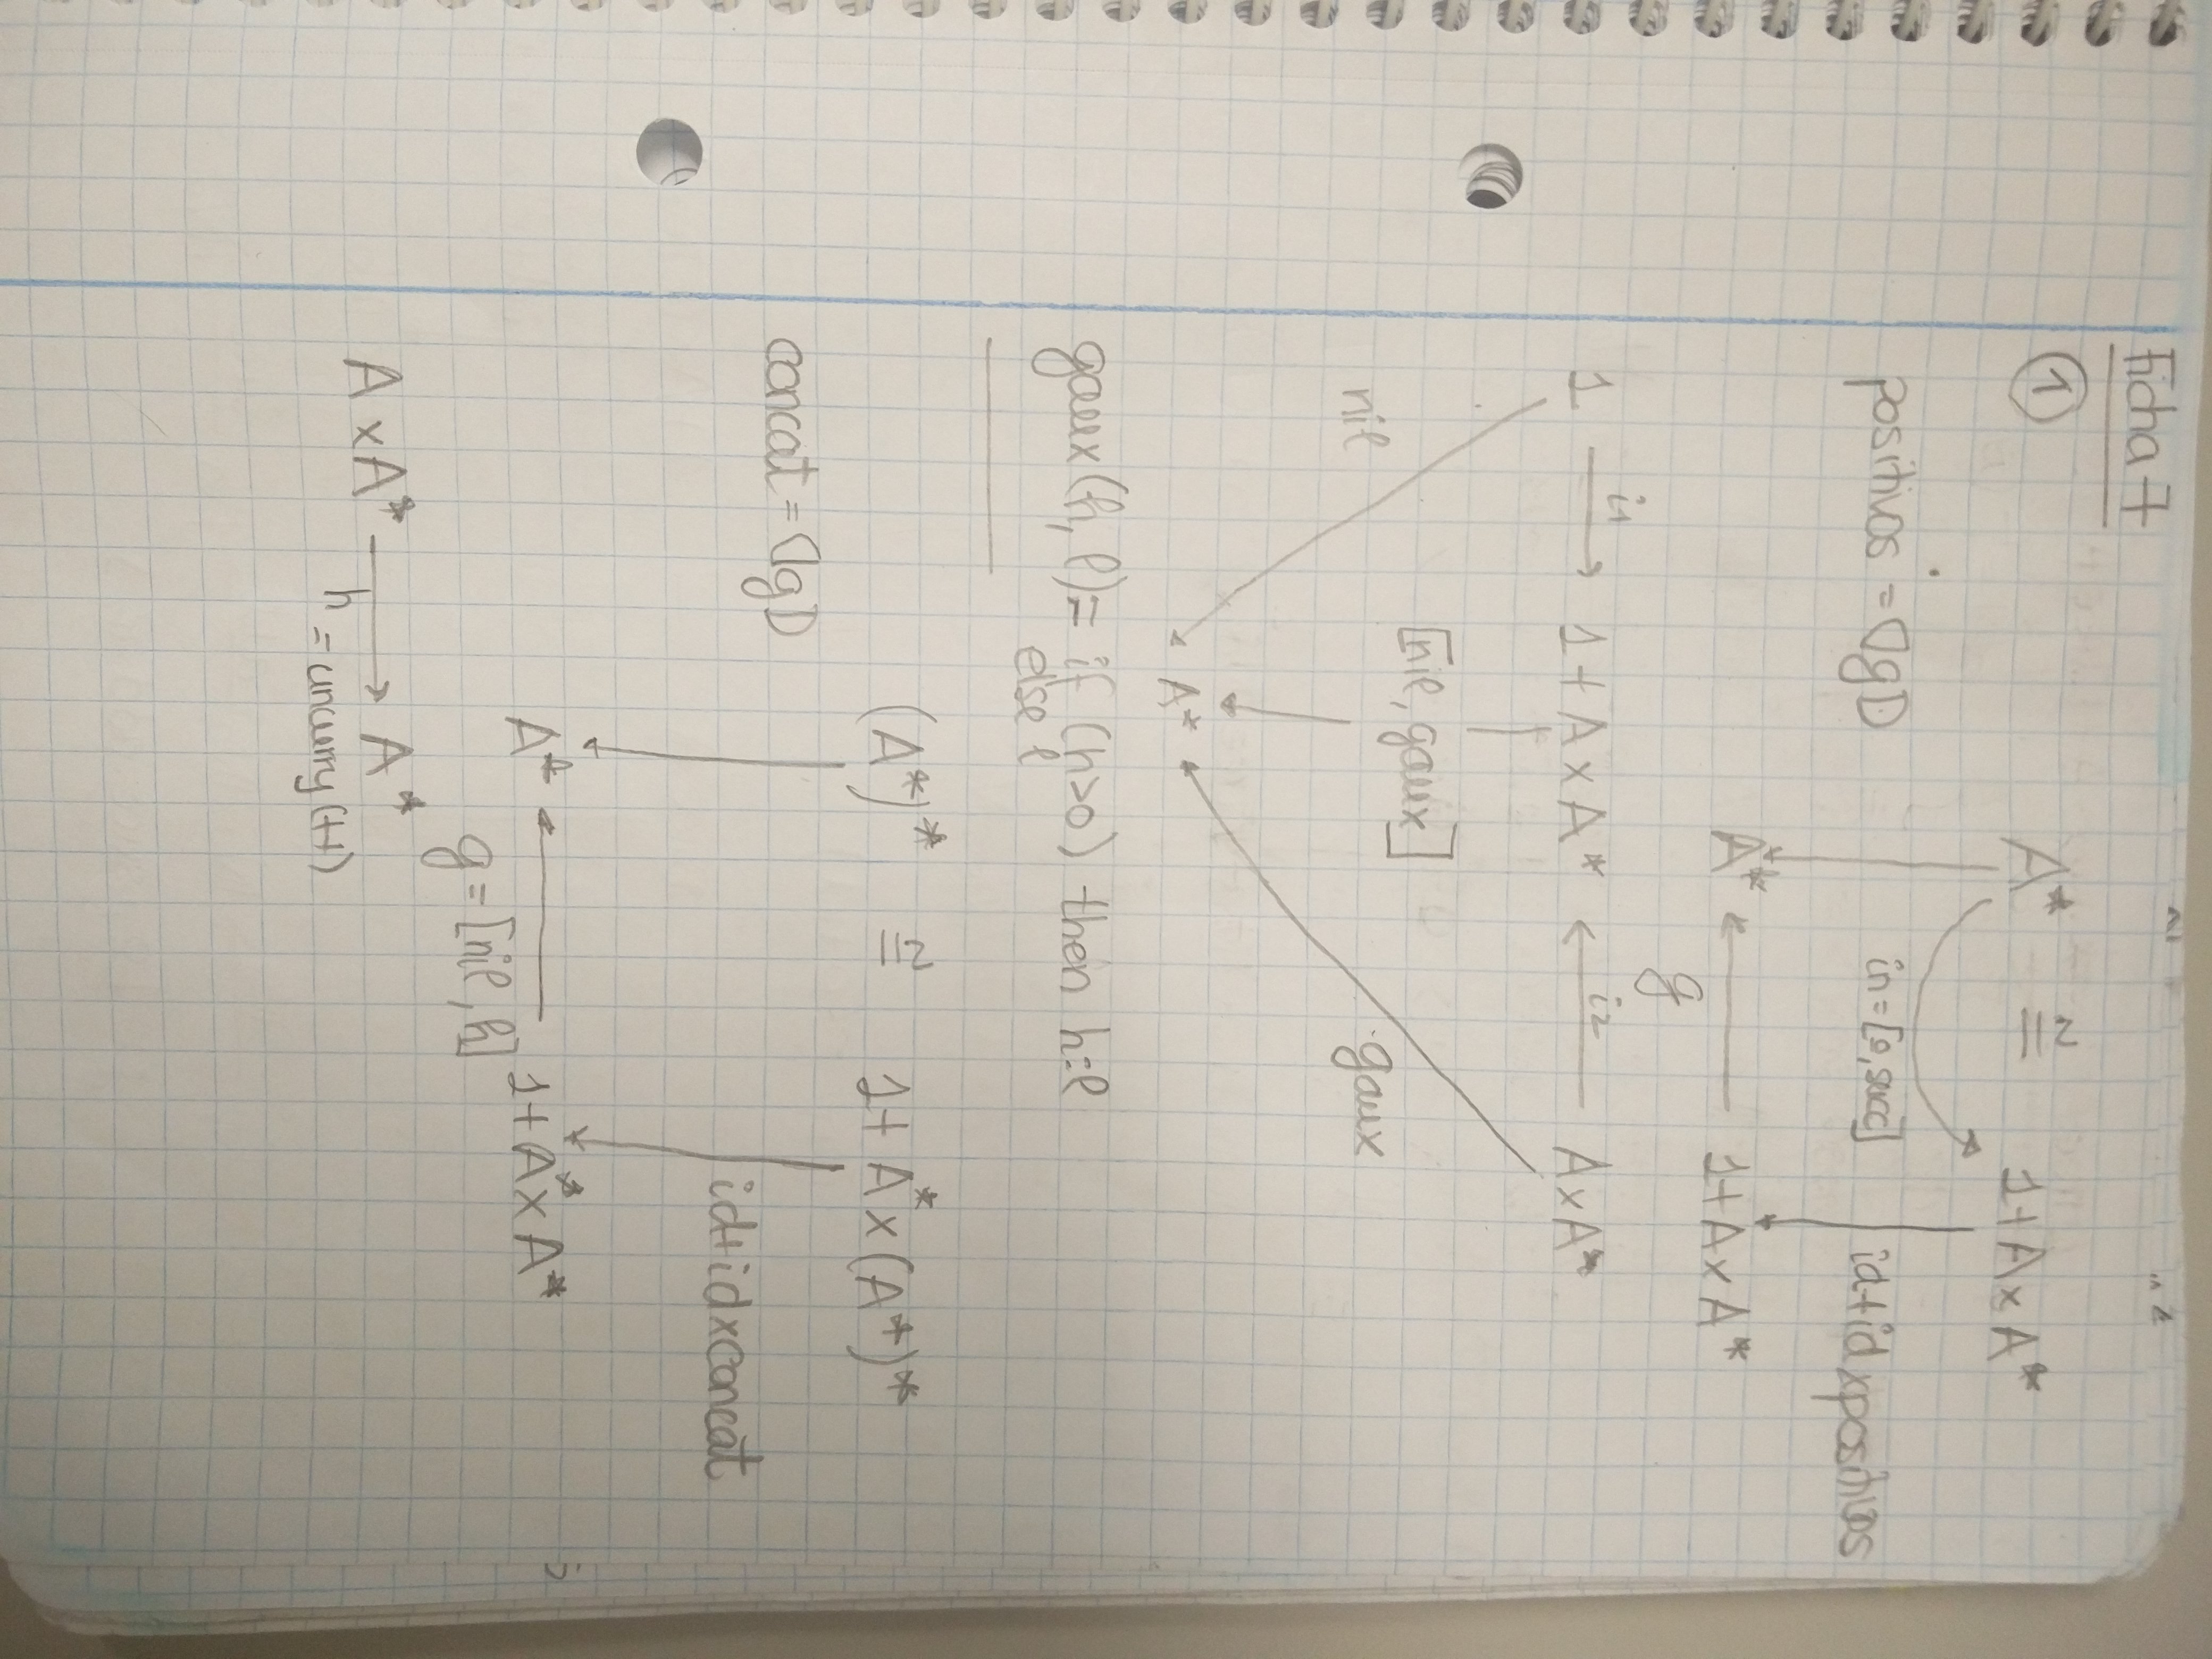 Ficha 7
①
A* ≅ 1+A×A*
positivos = ⦇g⦈ in=[0,succ] id+id×positivos
A* ← 1+A×A*
g
1 i1→ 1+A×A* ←i2 A×A*
[nil, gaux]
nil gaux
A*
gaux(h, l)= if (h>0) then h:l
else l
(A*)* ≅ 1+A*×(A*)*
concat = ⦇g⦈
id+id×concat
A* ← 1+A*×A*
g=[nil, h]
A×A* → A*
h = uncurry(++)